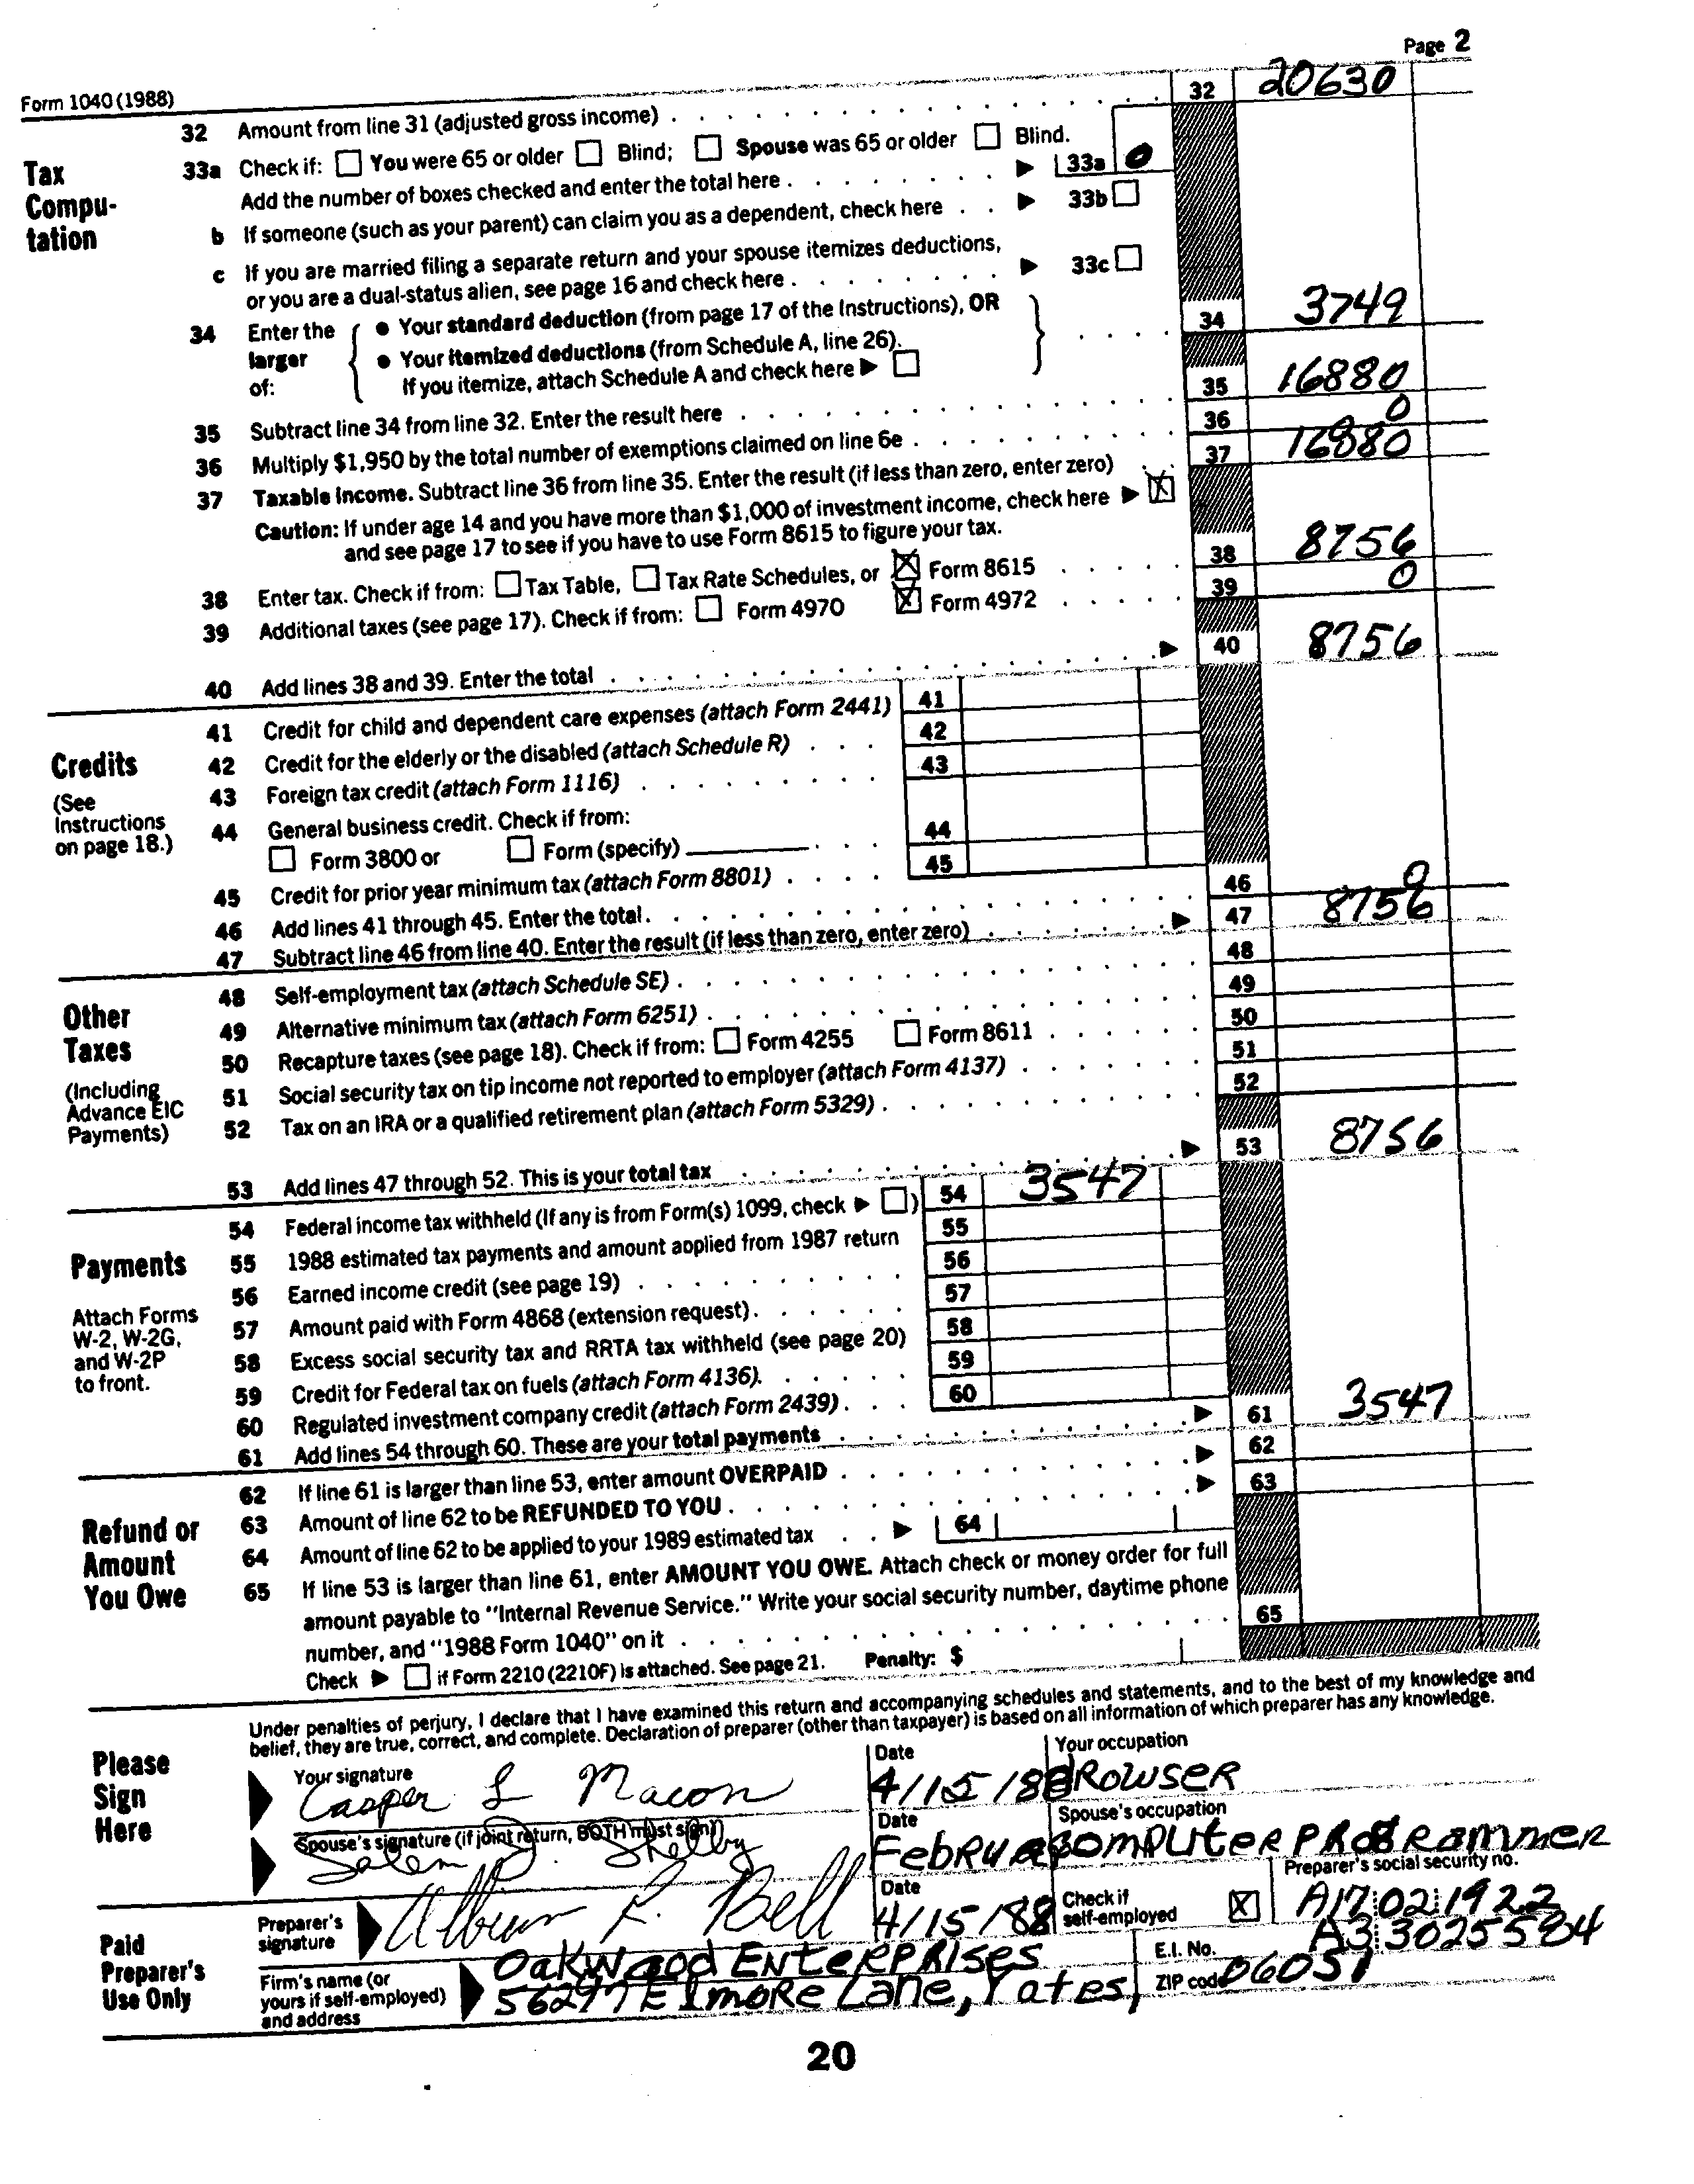 Page 2
Form 1040 (1988)
32 Amount from line 31 (adjusted gross income) 32 20630
Tax Compu-tation
33a Check if: You were 65 or older Blind; Spouse was 65 or older Blind.
Add the number of boxes checked and enter the total here 33a 0
b If someone (such as your parent) can claim you as a dependent, check here 33b
c If you are married filing a separate return and your spouse itemizes deductions,
or you are a dual-status alien, see page 16 and check here 33c
34 Enter the larger of:
• Your standard deduction (from page 17 of the Instructions), OR
• Your itemized deductions (from Schedule A, line 26).
If you itemize, attach Schedule A and check here
34 3749
35 Subtract line 34 from line 32. Enter the result here 35 16880
36 Multiply $1,950 by the total number of exemptions claimed on line 6e 36 0
37 Taxable income. Subtract line 36 from line 35. Enter the result (if less than zero, enter zero) 37 16880
Caution: If under age 14 and you have more than $1,000 of investment income, check here X
and see page 17 to see if you have to use Form 8615 to figure your tax.
38 Enter tax. Check if from: Tax Table, Tax Rate Schedules, or X Form 8615 38 8756
39 Additional taxes (see page 17). Check if from: Form 4970 X Form 4972 39 0
40 Add lines 38 and 39. Enter the total 40 8756
Credits
(See Instructions on page 18.)
41 Credit for child and dependent care expenses (attach Form 2441) 41
42 Credit for the elderly or the disabled (attach Schedule R) 42
43 Foreign tax credit (attach Form 1116) 43
44 General business credit. Check if from:
Form 3800 or Form (specify) 44
45 Credit for prior year minimum tax (attach Form 8801) 45
46 Add lines 41 through 45. Enter the total 46 0
47 Subtract line 46 from line 40. Enter the result (if less than zero, enter zero) 47 8756
Other Taxes
(Including Advance EIC Payments)
48 Self-employment tax (attach Schedule SE) 48
49 Alternative minimum tax (attach Form 6251) 49
50 Recapture taxes (see page 18). Check if from: Form 4255 Form 8611 50
51 Social security tax on tip income not reported to employer (attach Form 4137) 51
52 Tax on an IRA or a qualified retirement plan (attach Form 5329) 52
53 Add lines 47 through 52. This is your total tax 53 8756
Payments
Attach Forms W-2, W-2G, and W-2P to front.
54 Federal income tax withheld (If any is from Form(s) 1099, check ) 54 3547
55 1988 estimated tax payments and amount applied from 1987 return 55
56 Earned income credit (see page 19) 56
57 Amount paid with Form 4868 (extension request) 57
58 Excess social security tax and RRTA tax withheld (see page 20) 58
59 Credit for Federal tax on fuels (attach Form 4136). 59
60 Regulated investment company credit (attach Form 2439) 60
61 Add lines 54 through 60. These are your total payments 61 3547
Refund or Amount You Owe
62 If line 61 is larger than line 53, enter amount OVERPAID 62
63 Amount of line 62 to be REFUNDED TO YOU 63
64 Amount of line 62 to be applied to your 1989 estimated tax 64
65 If line 53 is larger than line 61, enter AMOUNT YOU OWE. Attach check or money order for full
amount payable to "Internal Revenue Service." Write your social security number, daytime phone
number, and "1988 Form 1040" on it 65
Check if Form 2210 (2210F) is attached. See page 21. Penalty: $
Please Sign Here
Under penalties of perjury, I declare that I have examined this return and accompanying schedules and statements, and to the best of my knowledge and
belief, they are true, correct, and complete. Declaration of preparer (other than taxpayer) is based on all information of which preparer has any knowledge.
Your signature Date Your occupation
Casper L Macon 4/15/88 DROWSER
Spouse's signature (if joint return, BOTH must sign) Date Spouse's occupation
Salem D. Shelby Februa COMPUTER PROGRAMMER
Paid Preparer's Use Only
Preparer's signature Date Check if self-employed X Preparer's social security no.
L. Bell 4/15/88 A17 02 1922
Firm's name (or yours if self-employed) and address
Oakwood ENTERPRISES E.I. No. A3 3025584
56297 Elmore Lane, Yates, ZIP code 06051
20